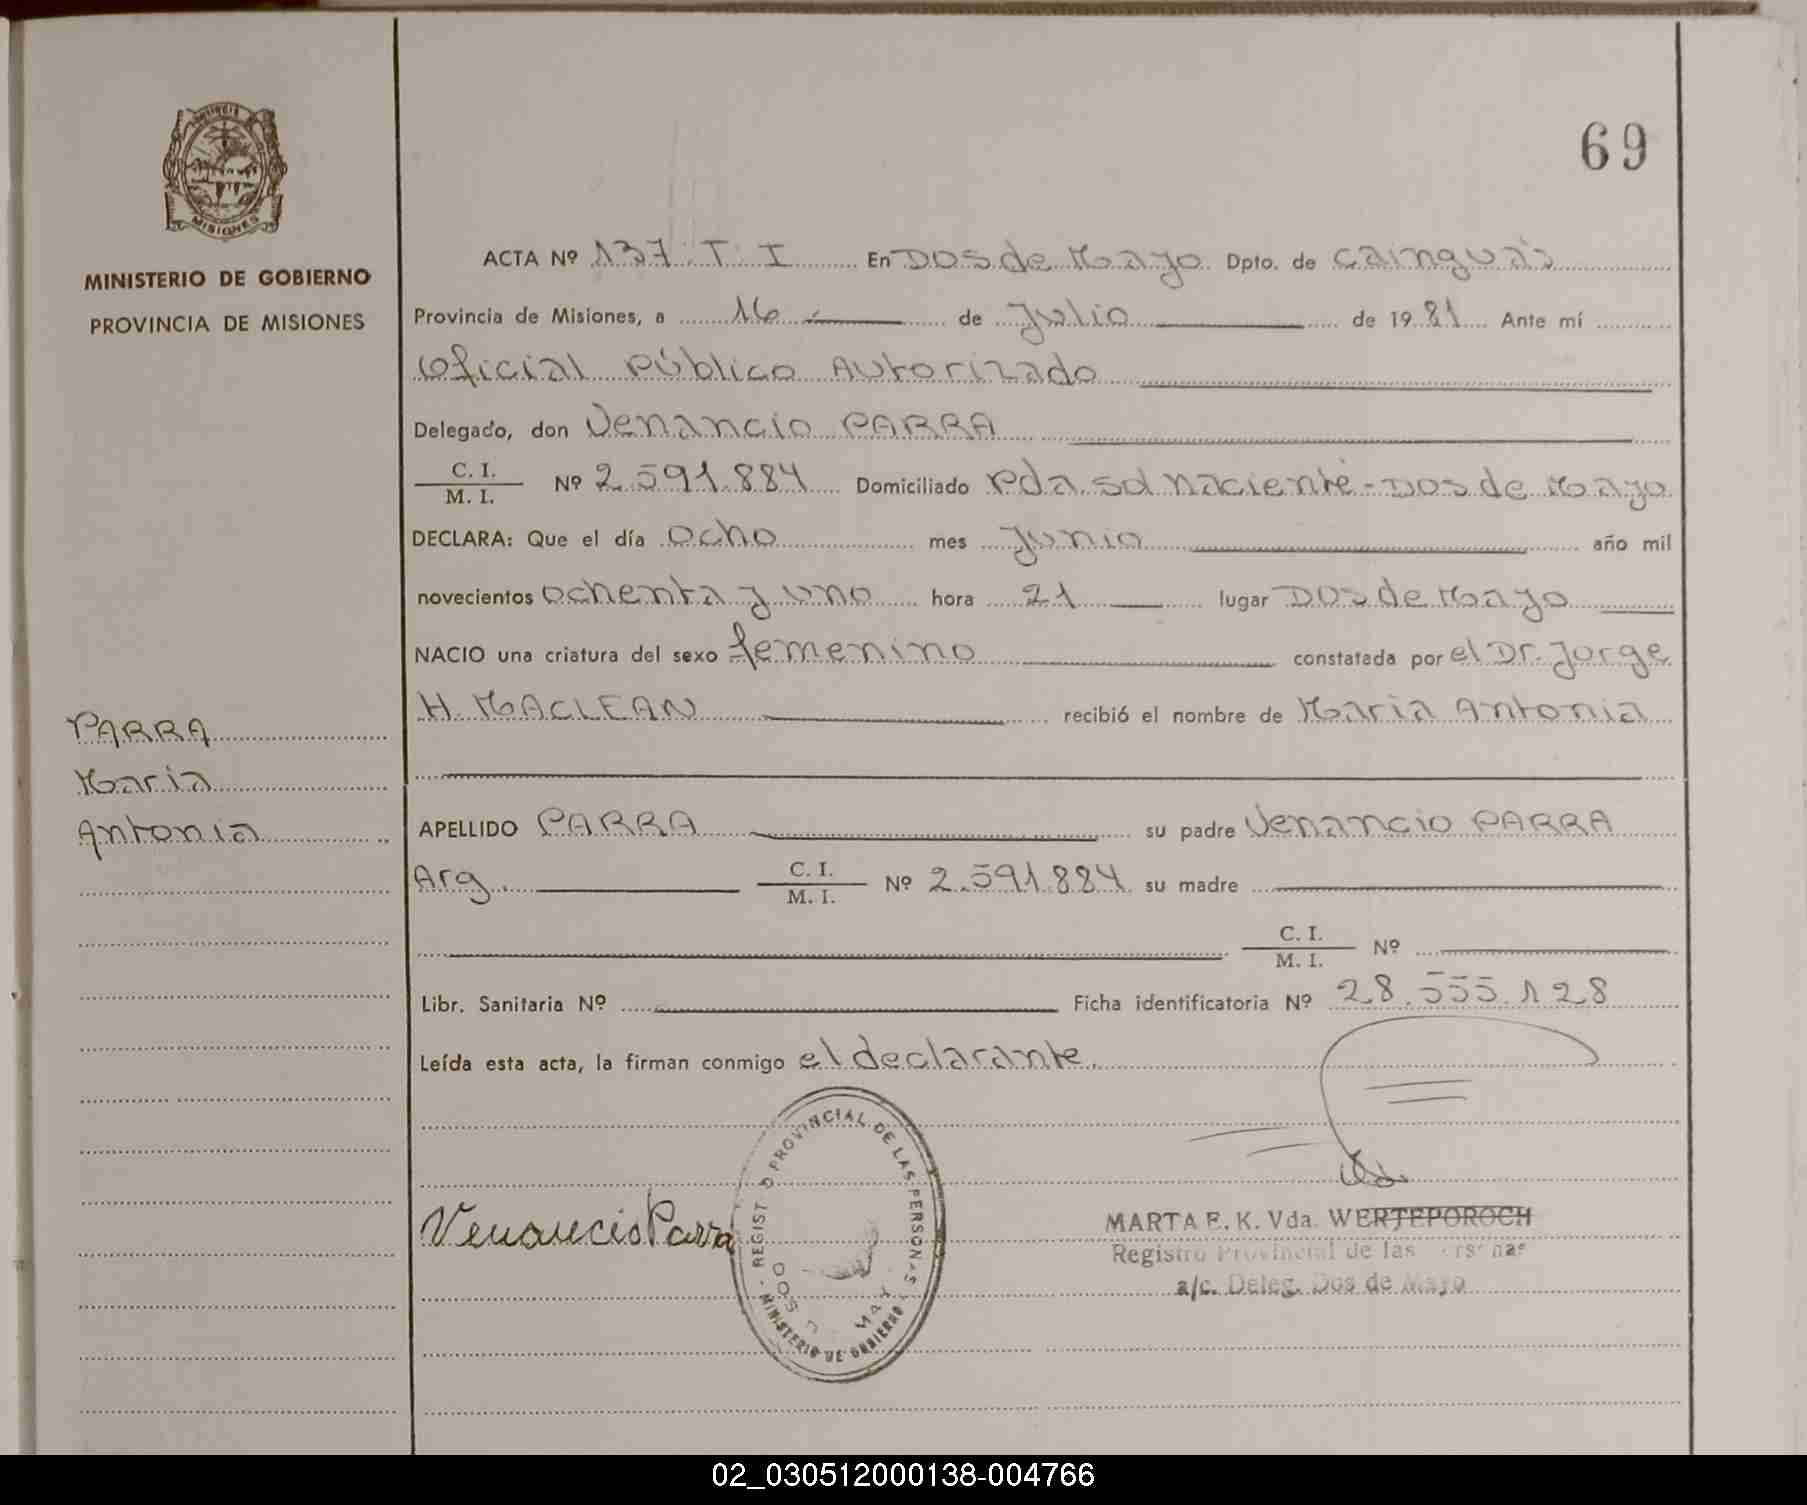 69
PROVINCIA
MISIONES
MINISTERIO DE GOBIERNO
PROVINCIA DE MISIONES
PARRA
Maria
Antonia
ACTA Nº 137. T. I En Dos de Mayo Dpto. de Cainguás
Provincia de Misiones, a 16 de Julio de 1981 Ante mí
Oficial Público Autorizado
Delegado, don Venancio PARRA
C. I.
M. I. Nº 2.591.884 Domiciliado Pda. Sol Naciente - Dos de Mayo
DECLARA: Que el día ocho mes Junio año mil
novecientos ochenta y uno hora 21 lugar Dos de Mayo
NACIO una criatura del sexo femenino constatada por el Dr. Jorge
H. MACLEAN recibió el nombre de Maria Antonia
APELLIDO PARRA su padre Venancio PARRA
Arg. C. I.
M. I. Nº 2.591.884 su madre
C. I.
M. I. Nº
Libr. Sanitaria Nº Ficha identificatoria Nº 28.555.128
Leída esta acta, la firman conmigo el declarante.
Venancio Parra
REGISTRO PROVINCIAL DE LAS PERSONAS
MINISTERIO DE GOBIERNO
MARTA E. K. Vda. WERTEPOROCH
Registro Provincial de las Personas
a/c. Deleg. Dos de Mayo
02_030512000138-004766